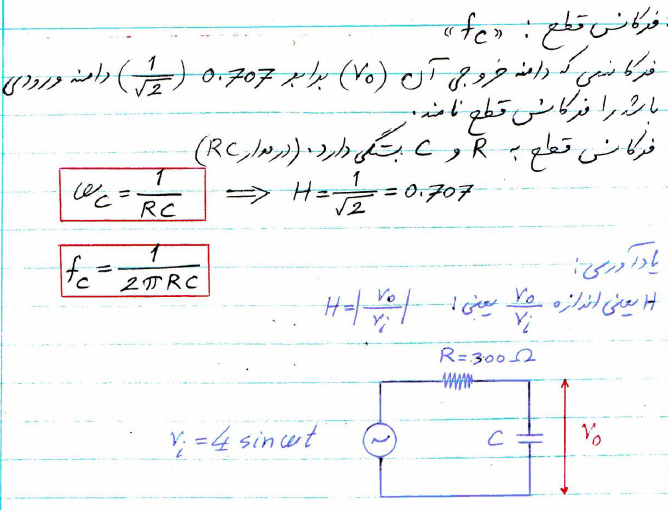 فرکانس قطع : «fc»
فرکانسی که دامنه خروجی آن (Vo) برابر 0.707 (1/√2) دامنه ورودی
باشد را فرکانس قطع نامند.
فرکانس قطع به R و C بستگی دارد. (در مدار RC)
ωc = 1/RC ⟹ H = 1/√2 = 0.707
fc = 1/2πRC
یادآوری:
H یعنی اندازه Vo/Vi یعنی: H = |Vo/Vi|
R = 300 Ω
Vi = 4 sin ωt
C
Vo